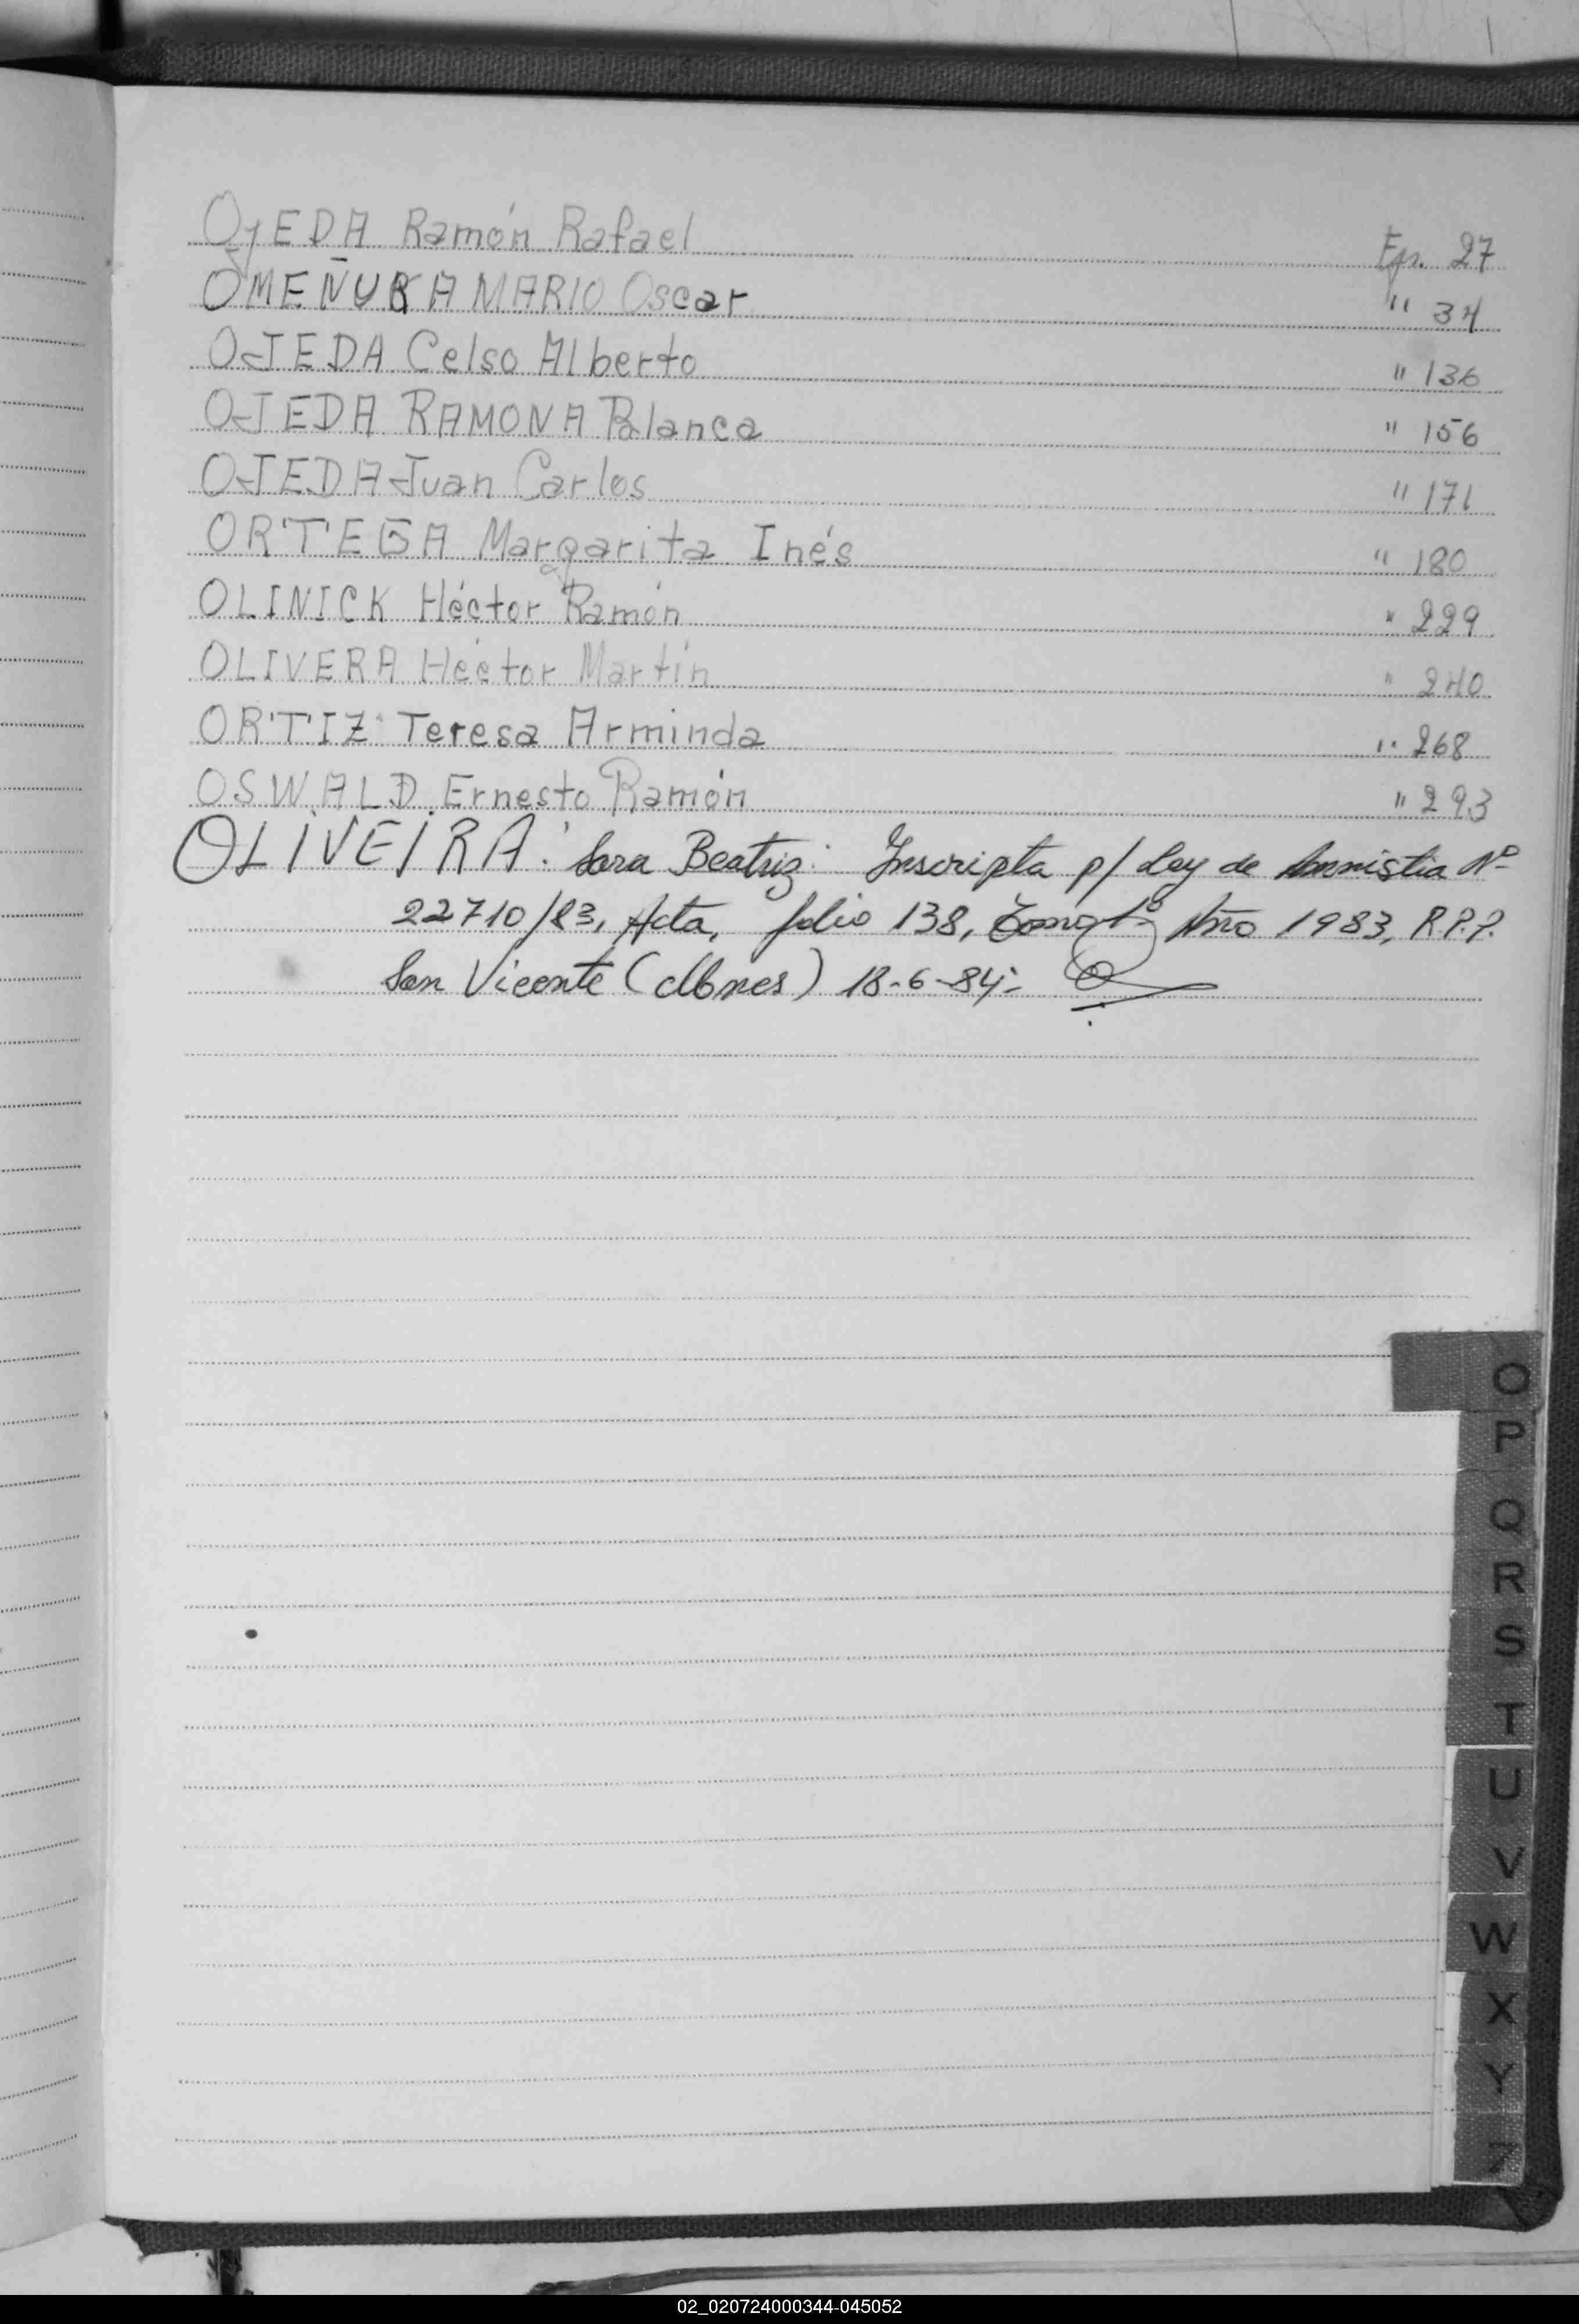 OJEDA Ramón Rafael Fjs. 27
OMEÑUKA MARIO Oscar " 34
OJEDA Celso Alberto " 136
OJEDA RAMONA Blanca " 156
OJEDA Juan Carlos " 171
ORTEGA Margarita Inés " 180
OLINICK Héctor Ramón " 229
OLIVERA Héctor Martín " 240
ORTIZ Teresa Arminda " 268
OSWALD Ernesto Ramón " 293
OLIVEIRA: Sara Beatriz: Inscripta p/ Ley de Amnistia Nº
22710/83, Acta, folio 138, Tomo 1º Año 1983, R.P.P.
San Vicente (Mbnes) 18-6-84;-
O
P
Q
R
S
T
U
V
W
X
Y
Z
02_020724000344-045052